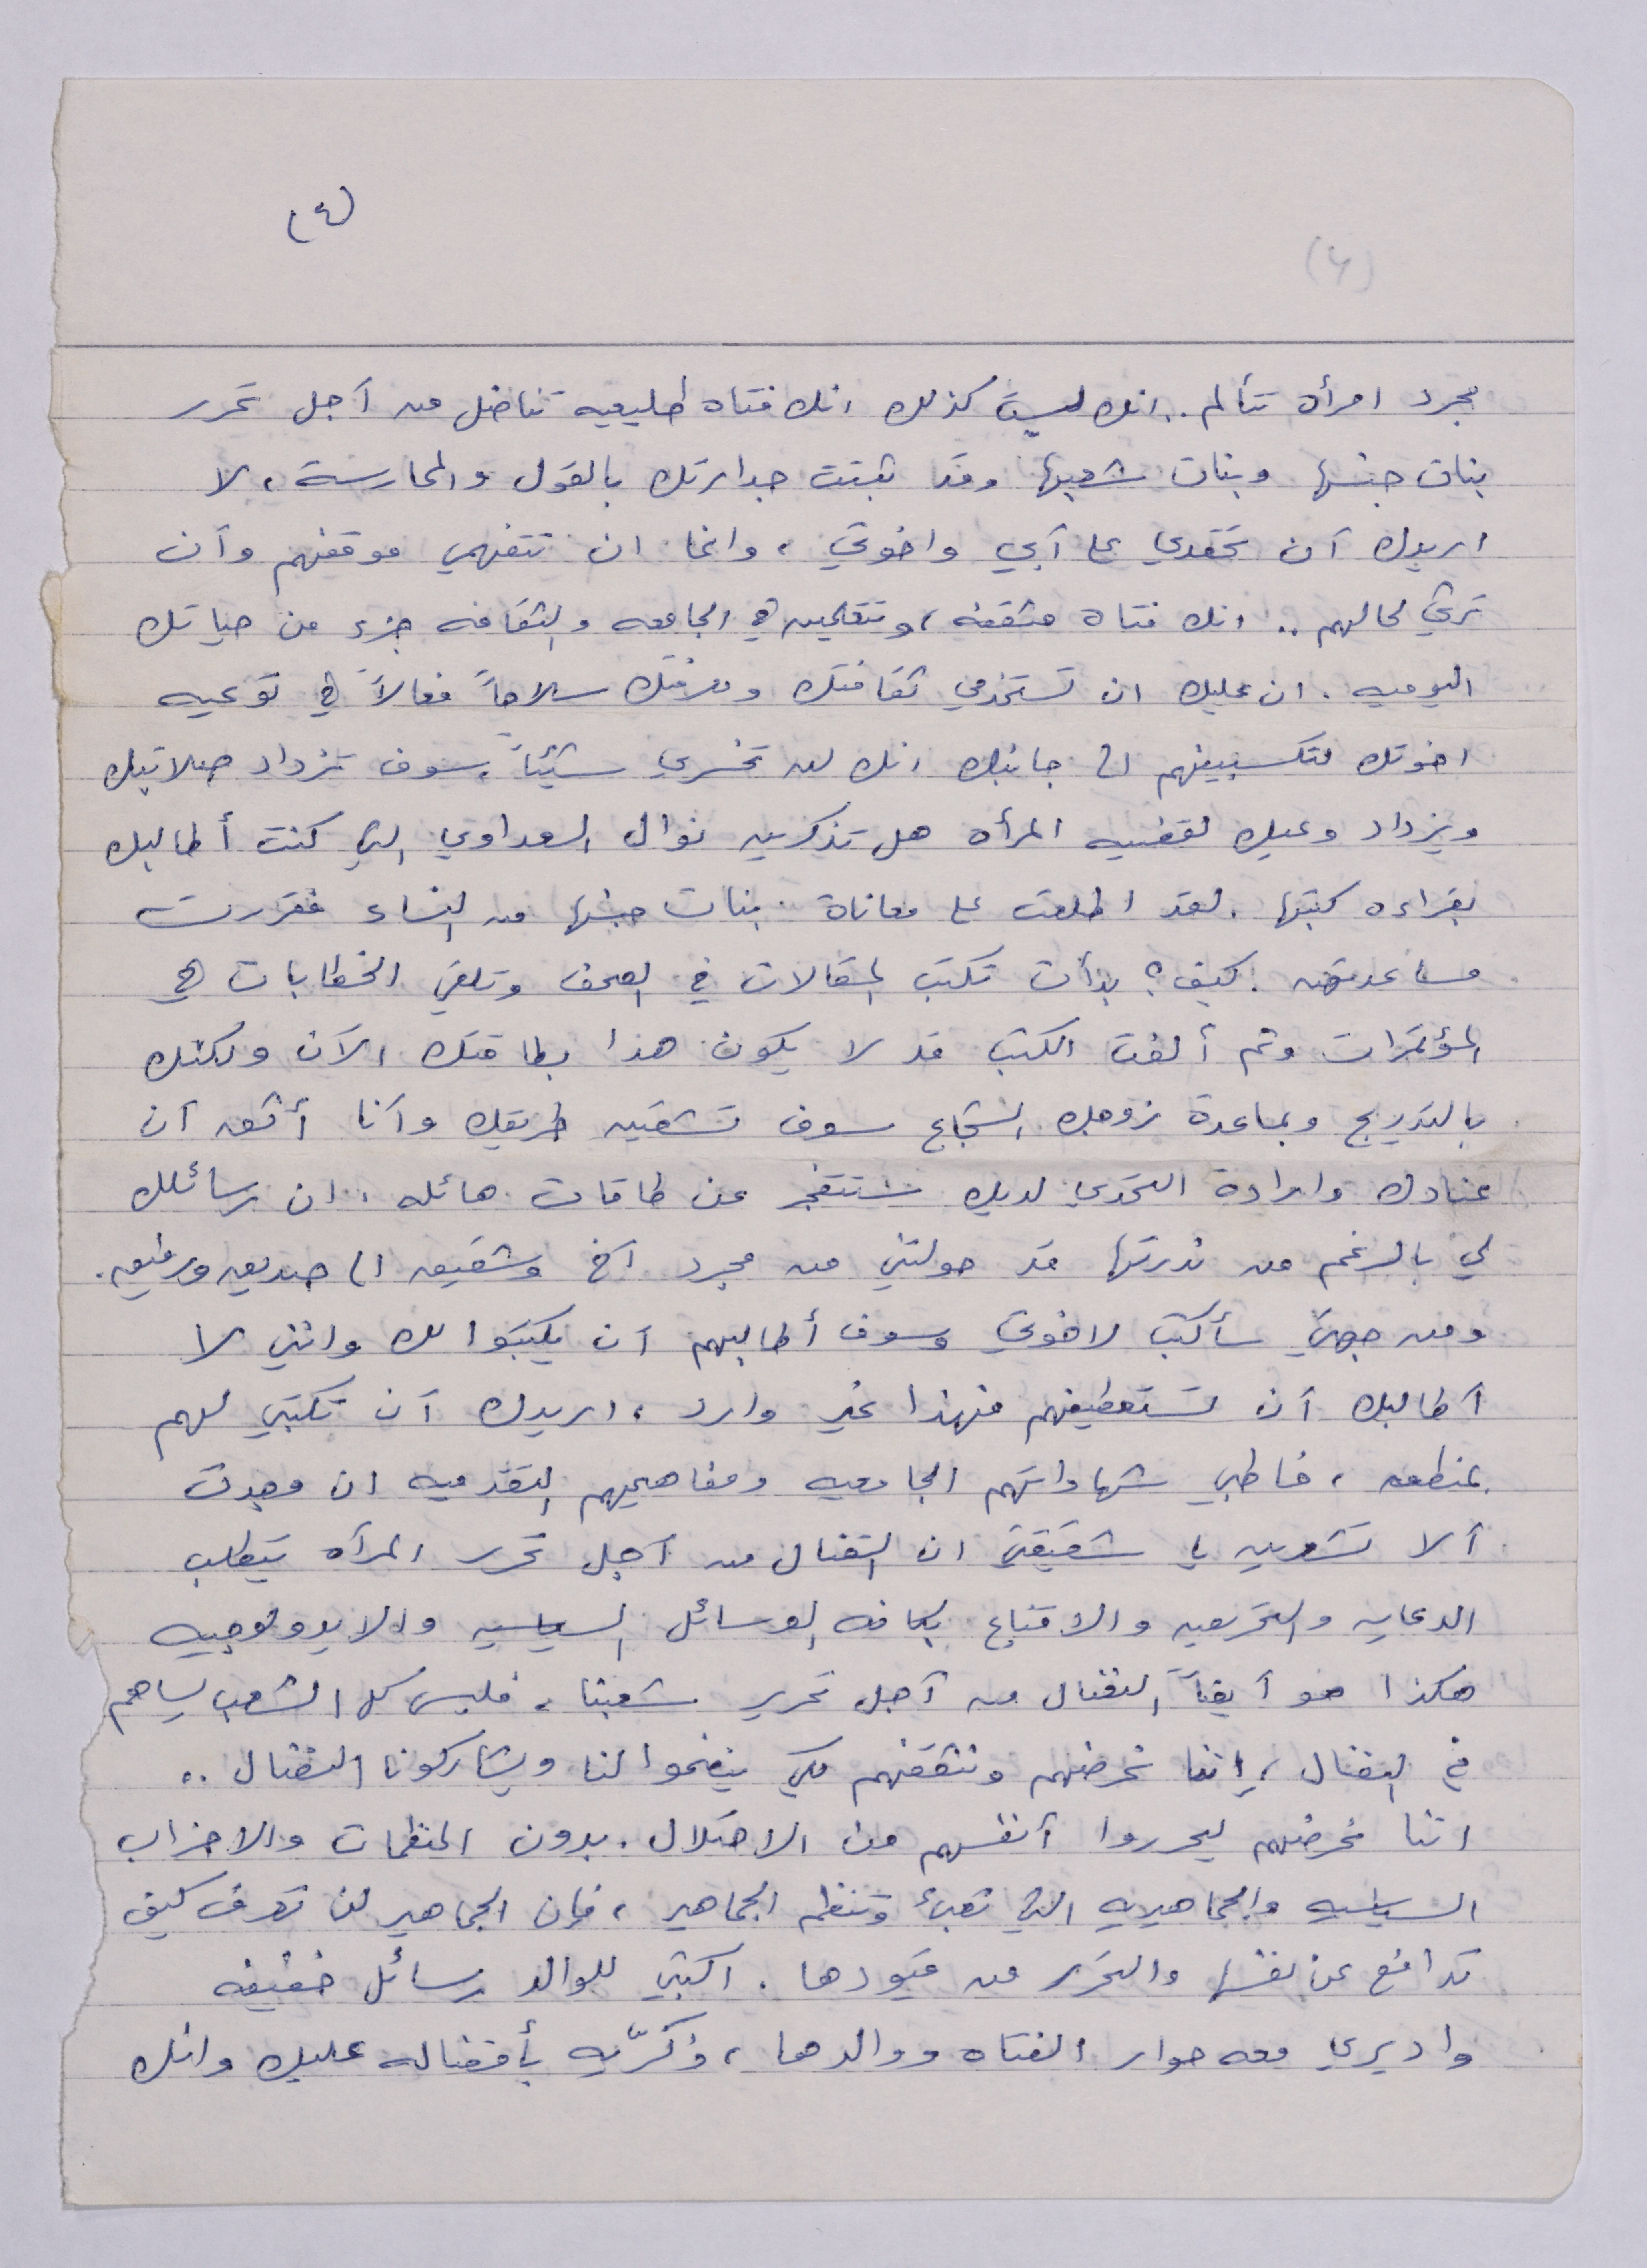 (٤)
(٤)
مجرد امرأه تتألم .. انك لست كذلك انك فتاه طليعيه تناضل من آجل تحرر
بنات جنسها وبنات شعبها وقد ثبتت جدارتك بالقول والممارسة ، لا
اريدك آن تحقدي على آبي واخوتي ، وانما ان تتفهمي موقفهم وآن
ترثي لحالهم .. انك فتاه مثقفه ، وتتعلمين في الجامعه والثقافه جزء من حياتك
اليوميه . ان عليك ان تستخدمي ثقافتك ومعرفتك سلاحاً فعالاً في توعيه
اخوتك لتكسبينهم الى جانبك انك لن تخسري شيئاً ، سوف تزداد صلابتك
ويزداد وعيك لقضيه المرأه هل تذكرين نوال السعداوي التي كنت أطالبك
بقراءه كتبها . لقد اطلعت على معاناة بنات جنسها من النساء فقررت
مساعدتهن . كيف ؟ بدأت تكتب المقالات في الصحف وتلقي الخطابات في
المؤتمرات وثم ألفت الكتب قد لا يكون هذا بطاقتك الآن ولكنك
بالتدريج وبمساعدة زوجك الشجاع سوف تشقين طريقك وآنا أثق آن
عنادك وارادة التحدي لديك ستتفجر عن طاقات هائله . ان رسائلك
لي بالرغم من ندرتها قد حولتني من مجرد آخ وشقيق الى صديق ورفيق .
ومن جهتي سأكتب لاخوتي وسوف أطالبهم آن يكتبوا لك وانني لا
آطالبك آن تستعطفيهم فهذا غير وارد ، اريدك آن تكتبي لهم
بمنطق ، خاطبي شهاداتهم الجامعيه ومفاهيمهم التقدميه ان وجدت
آلا تشعرين يا شقيقتي ان النضال من آجل تحرر المرآه يتطلب
الدعايه والتحريض والاقناع بكافه الوسائل السياسيه والايدولوجيه
هكذا هو آيضاً النضال من آجل تحرير شعبنا ، فليس كل الشعب يساهم
في النضال ، إننا نحرضهم ونثقفهم لكي ينضموا لنا ويشاركونا النضال ..
اننا نحرضهم ليحرروا آنفسهم من الاحتلال . بدون المنظمات والاحزاب
السياسيه والجماهيريه التي تعبئ وتنظم الجماهير ، فإن الجماهير لن تعرف كيف
تدافع عن نفسها والتحرر من قيودها . اكتبي للوالد رسائل خفيفه
واديري معه حوار الفتاه ووالدها ، ذكرّيه بأفضاله عليك وانك